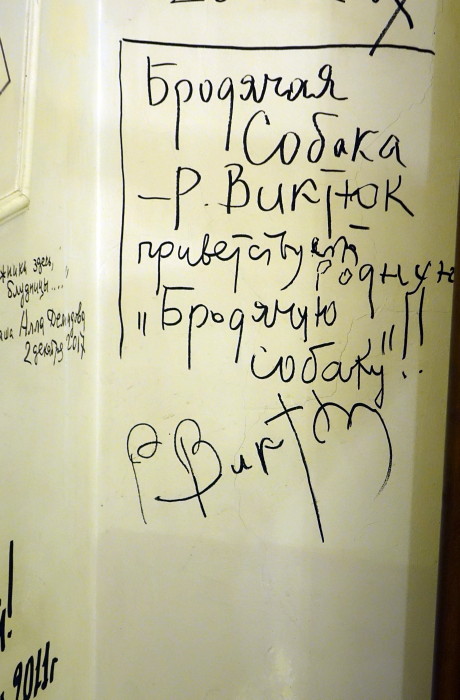 Бродячая
Собака
– Р. Виктюк
приветствует
родную
"Бродячую
собаку"!!
Р. Викт
здесь,
блудницы...."
Алла Демидова
2 декабря 2017
!
2011г